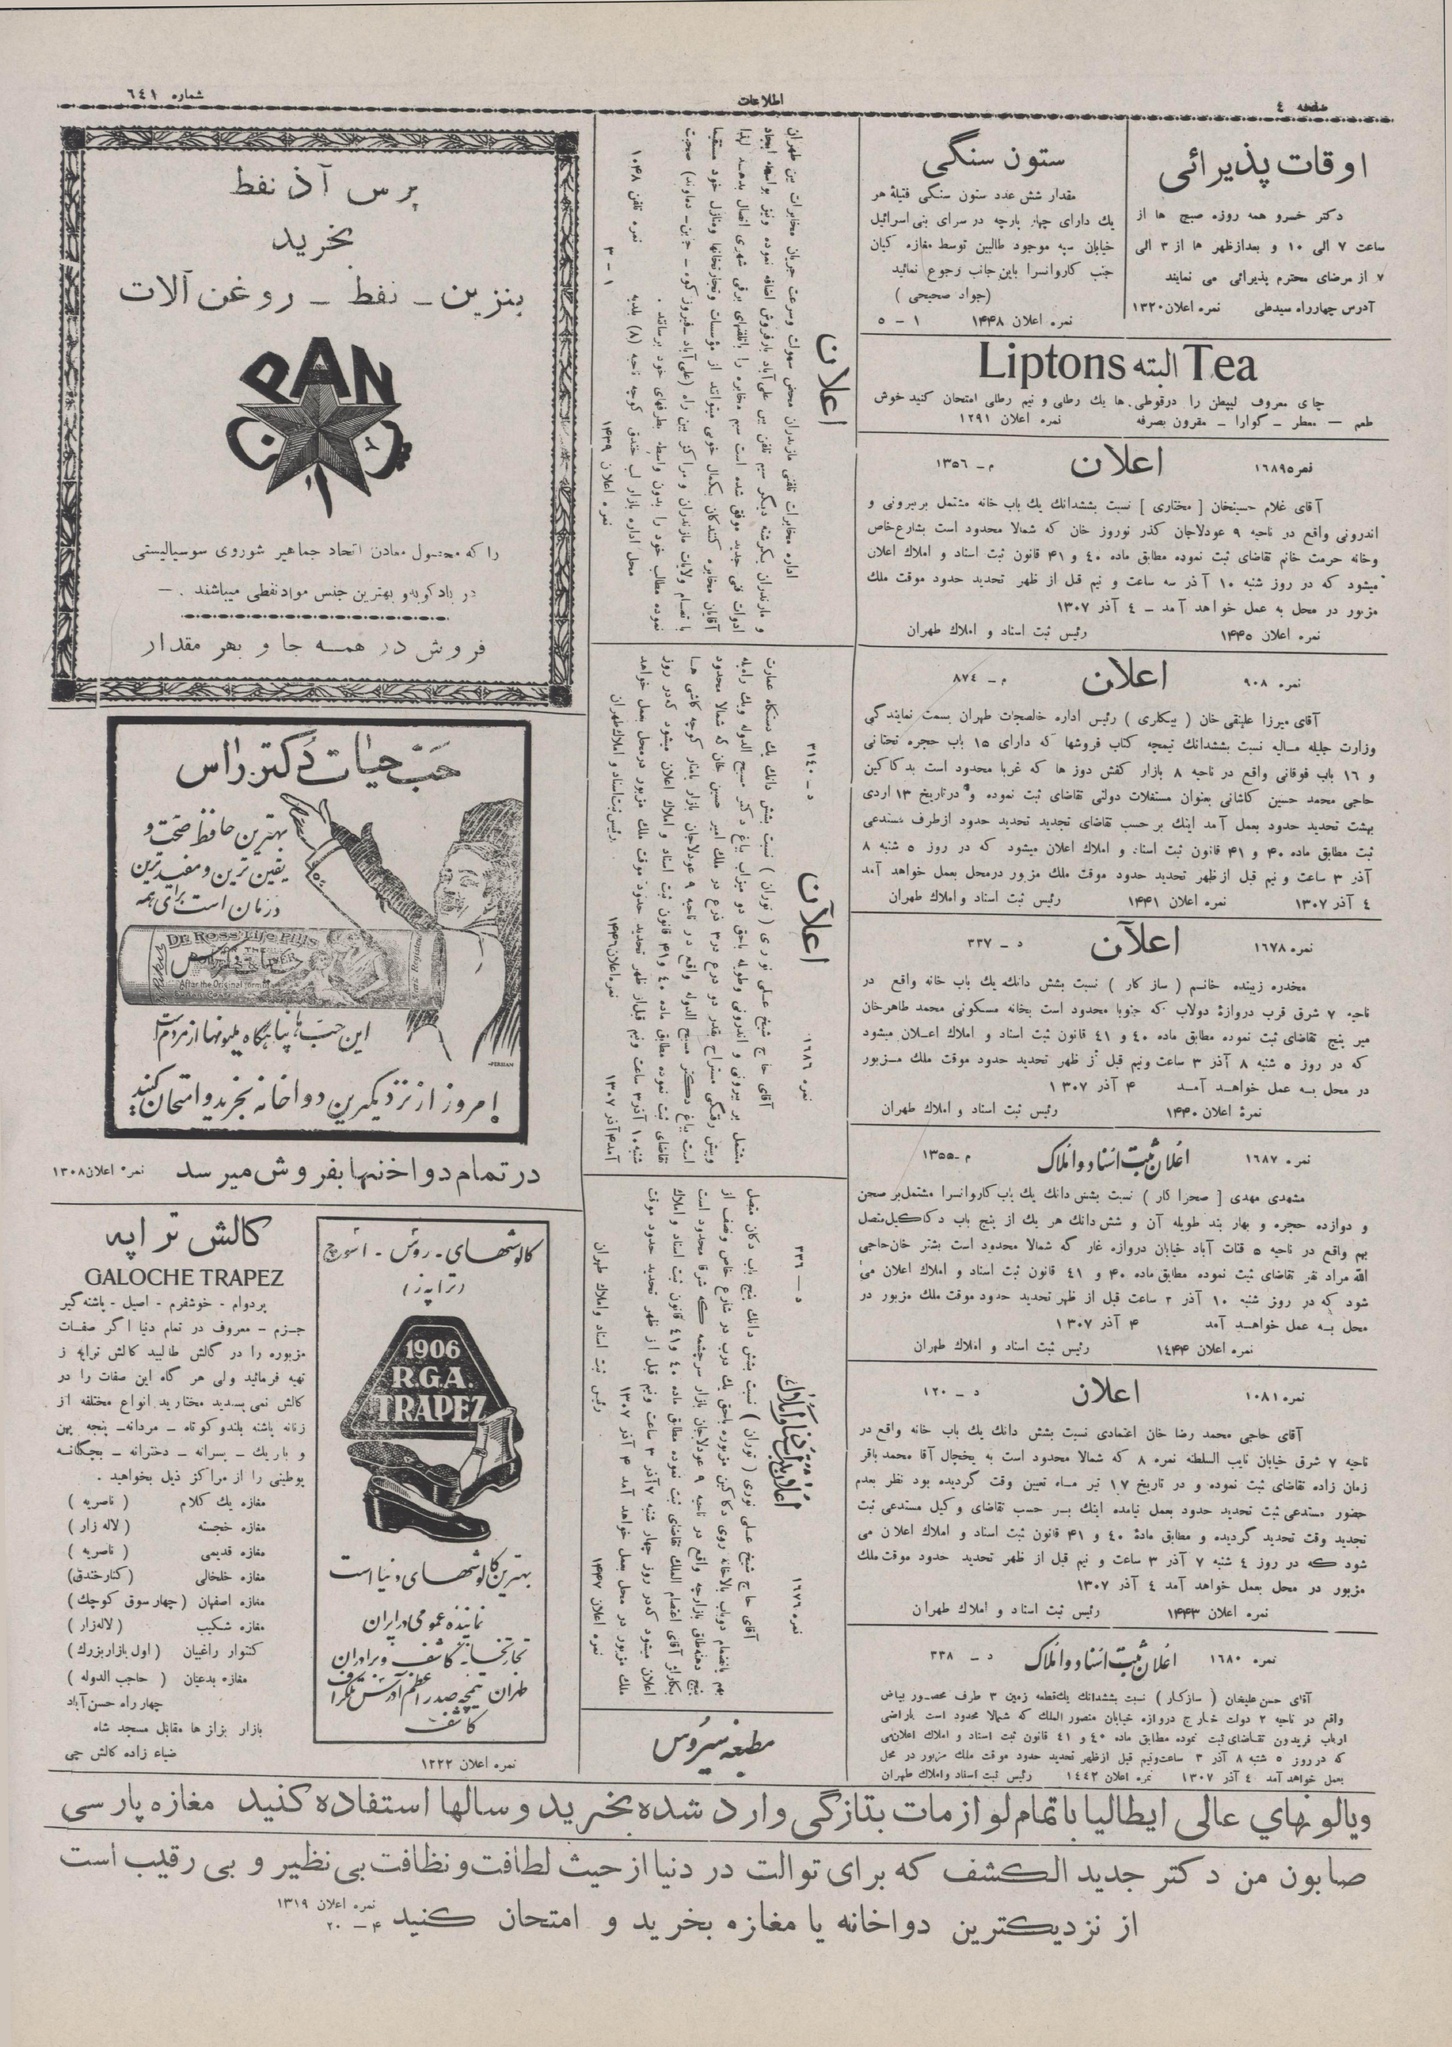 صفحه ٤
اطلاعات
شماره ٦٤١
اوقات پذیرائی
دکتر خسرو همه روزه صبح ها از
ساعت ۷ الی ۱۰ و بعدازظهر ها از ۳ الی
۷ از مرضای محترم پذیرائی می نمایند
آدرس چهارراه سیدعلی نمره اعلان ۱۳۲۰
ستون سنگی
مقدار شش عدد ستون سنگی فتیلهٔ هر
یك دارای چهار پارچه در سرای بنی اسرائیل
خیابان سپه موجود طالبین توسط مغازه کیان
جنب کاروانسرا باین جانب رجوع نمائید
(جواد صحیحی)
نمره اعلان ۱۴۴۸ ۱ – ۵
Liptons البته Tea
چای معروف لیپطن را درقوطی ها یك رطلی و نیم رطلی امتحان کنید خوش
طعم — معطر – گوارا – مقرون بصرفه نمره اعلان ۱۲۹۱
نمره ۱۶۸۹۵ اعلان م – ۱۳۵۶
آقای غلام حسینخان [ مختاری ] نسبت بششدانك یك باب خانه مشتمل بر بیرونی و
اندرونی واقع در ناحیه ۹ عودلاجان گذر نوروز خان که شمالا محدود است بشارع خاص
وخانه حرمت خانم تقاضای ثبت نموده مطابق ماده ٤٠ و ٤١ قانون ثبت اسناد و املاك اعلان
میشود که در روز شنبه ۱۰ آذر سه ساعت و نیم قبل از ظهر تحدید حدود موقت ملك
مزبور در محل به عمل خواهد آمد – ٤ آذر ۱۳۰۷
نمره اعلان ۱۴۴۵ رئیس ثبت اسناد و املاك طهران
نمره ۹۰۸ اعلان م – ۸۷٤
آقای میرزا علینقی خان ( بیگلری ) رئیس اداره خالصجات طهران بسمت نمایندگی
وزارت جلیله مالیه نسبت بششدانك تیمچه کتاب فروشها که دارای ۱۵ باب حجره تحتانی
و ۱۶ باب فوقانی واقع در ناحیه ۸ بازار کفش دوز ها که غربا محدود است بدکاکین
حاجی محمد حسین کاشانی بعنوان مستغلات دولتی تقاضای ثبت نموده و درتاریخ ۱۳ اردی
بهشت تحدید حدود بعمل آمد اینك بر حسب تقاضای تجدید تحدید حدود ازطرف مستدعی
ثبت مطابق ماده ۴۰ و ۴۱ قانون ثبت اسناد و املاك اعلان میشود که در روز ۵ شنبه ۸
آذر ۳ ساعت و نیم قبل ازظهر تحدید حدود موقت ملك مزبور درمحل بعمل خواهد آمد
٤ آذر ۱۳۰۷ نمره اعلان ۱۴۴۱ رئیس ثبت اسناد و املاك طهران
نمره ۱۶۷۸ اعلان د – ۳۳۷
مخدره زبینده خانم ( ساز کار ) نسبت بشش دانك یك باب خانه واقع در
ناحیه ۷ شرق قرب دروازهٔ دولاب که جنوبا محدود است بخانه مسکونی محمد طاهرخان
میر پنج تقاضای ثبت نموده مطابق ماده ٤٠ و ٤١ قانون ثبت اسناد و املاك اعلان میشود
که در روز ۵ شنبه ۸ آذر ۳ ساعت ونیم قبل از ظهر تحدید حدود موقت ملك مزبور
در محل به عمل خواهد آمد ۴ آذر ۱۳۰۷
نمرهٔ اعلان ۱۴۴۰ رئیس ثبت اسناد و املاك طهران
نمره ۱۶۸۷ اعلان ثبت اسناد و املاک م – ۱۳۵۵
مشهدی مهدی [ صحرا کار ] نسبت بشش دانك یك باب کاروانسرا مشتمل بر صحن
و دوازده حجره و بهار بند طویله آن و شش دانك هر یك از پنج باب دکاکین متصل
بهم واقع در ناحیه ۵ قنات آباد خیابان دروازه غار که شمالا محدود است بشتر خان حاجی
الله مراد نفر تقاضای ثبت نموده مطابق ماده ۴۰ و ٤١ قانون ثبت اسناد و املاك اعلان می
شود که در روز شنبه ۱۰ آذر ۳ ساعت قبل از ظهر تحدید حدود موقت ملك مزبور در
محل به عمل خواهد آمد ۴ آذر ۱۳۰۷
نمره اعلان ۱۴۴۴ رئیس ثبت اسناد و املاك طهران
نمره ۱۰۸۱ اعلان د – ۱۲۰
آقای حاجی محمد رضا خان اعتمادی نسبت بشش دانك یك باب خانه واقع در
ناحیه ۷ شرق خیابان نایب السلطنه نمره ۸ که شمالا محدود است به یخچال آقا محمد باقر
زمان زاده تقاضای ثبت نموده و در تاریخ ۱۷ تیر ماه تعیین وقت گردیده بود نظر بعدم
حضور مستدعی ثبت تحدید حدود بعمل نیامده اینك بر حسب تقاضای وکیل مستدعی ثبت
تجدید وقت تحدید گردیده و مطابق مادهٔ ٤٠ و ۴۱ قانون ثبت اسناد و املاك اعلان می
شود که در روز ٤ شنبه ۷ آذر ۳ ساعت و نیم قبل از ظهر تحدید حدود موقت ملك
مزبور در محل بعمل خواهد آمد ٤ آذر ۱۳۰۷
نمره اعلان ۱۴۴۳ رئیس ثبت اسناد و املاك طهران
نمره ۱۶۸۰ اعلان ثبت اسناد و املاک د – ۳۳۸
آقای حسن علیخان ( سازکار ) نسبت بششدانك یك قطعه زمین ۳ طرف محصور بیاض
واقع در ناحیه ۲ دولت خارج دروازه خیابان منصور الملك که شمالا محدود است باراضی
ارباب فریدون تقاضای ثبت نموده مطابق ماده ٤٠ و ٤١ قانون ثبت اسناد و املاك اعلان می
که در روز ۵ شنبه ۸ آذر ۳ ساعت ونیم قبل ازظهر تحدید حدود موقت ملك مزبور در محل
بعمل خواهد آمد ٤ آذر ۱۳۰۷ نمره اعلان ۱۴۴۲ رئیس ثبت اسناد و املاك طهران
اعلان
اداره مخابرات تلفنی مازندران محض سهولت وسرعت جریان مخابرات بین طهران
و مازندران یکرشته دیگر سیم تلفن بین علی آباد بارفروش اضافه نموده ونیز بواسطه ایجاد
ادوات فنی جدید موفق شده است سیم مخابره را باتلفنهای برقی شهری اتصال بدهد لهذا
آقایان مخابره کنندگان بکمال خوبی میتوانند از مؤسسات وتجارتخانها ومنازل خود مستقیما
با تمام ولایات مازندران و مراکز بین راه (علی آباد – فیروز کوه – جابن – دماوند) صحبت
نموده مطالب خود را بدون واسطه بطرفهای خود برسانند .
محل اداره بازار لب خندق کوچه ناحیه (۸) بلدیه نمره تلفن ۱۰۴۸
نمره اعلان ۱۴۳۹ ۱ – ۳
نمره ۱۶۸۶ اعلان د – ۳۱۴۰
آقای حاج شیخ علی نوری ( نوران ) نسبت بشش دانك یك دستگاه عمارت
مشتمل بر بیرونی و اندرونی وطویله باحق دو میزاب بباغ دکتر مسیح الدوله ویك راه پله
وپیش رفتگی مستراح بقدر دو ذرع در ۳ ذرع در ملك امیر حسین خان که شمالا محدود
است بباغ دکتر مسیح الدوله واقع در ناحیه ۹ عودلاجان بازار پامنار کوچه کاشی ها
تقاضای ثبت نموده مطابق ماده ٤٠ و٤١ قانون ثبت اسناد و املاك اعلان میشود که در روز
شنبه ۱۰ آذر ۳ ساعت ونیم قبل از ظهر تحدید حدود موقت ملك مزبور درمحل بعمل خواهد
آمد ۴ آذر ۱۳۰۷ نمره اعلان ۱۴۴۶ رئیس ثبت اسناد و املاك طهران
نمره ۱۶۷۶ اعلان ثبت اسناد و املاک د – ۳۳۶
آقای حاج شیخ علی نوری ( نوران ) نسبت بشش دانك پنج باب دکان متصل
بهم بانضمام دوباب بالاخانه روی دکاکین مزبوره باحق یك درب در شارع خاص وصف از
پنج دهنه طاق بازارچه واقع در ناحیه ۹ عودلاجان بازار سرچشمه که شرقا محدود است
بکاراژ آقای اعتصام الملك تقاضای ثبت نموده مطابق ماده ٤٠ و٤١ قانون ثبت اسناد و املاك
اعلان میشود که در روز چهار شنبه ۷ آذر ۳ ساعت ونیم قبل از ظهر تحدید حدود موقت
ملك مزبور در محل بعمل خواهد آمد ۴ آذر ۱۳۰۷
نمره اعلان ۱۴۴۷ رئیس ثبت اسناد واملاك طهران
مطبعه سیروس
پرس آذ نفط
بخرید
بنزین – نفط – روغن آلات
PAN
را که محصول معادن اتحاد جماهیر شوروی سوسیالیستی
در بادکوبه و بهترین جنس مواد نفطی میباشند . —
فروش در همه جا و بهر مقدار
حب حیات دکتر راس
بهترین حافظ صحت و
یقین ترین و مفید ترین
درمان است برای همه
Dr. Ross' Life Pills
After the Original form
این حب ها پناهگاه ملیونها از مردم است
PERSIAN
امروز از نزدیکترین دواخانه بخرید و امتحان کنید!
در تمام دواخنها بفروش میرسد نمره اعلان ۱۳۰۸
کالوشهای - روش - اشورچ
(تراپه ز)
1906
R.G.A.
TRAPEZ
بهترین کالوشهای دنیا است
نماینده عمومی در ایران
تجارتخانه کاشف و برادران
طهران تیمچه صدر اعظم آدرس تلگراف
کاشف
نمره اعلان ۱۳۲۲
کالش تراپه
GALOCHE TRAPEZ
پردوام – خوشفرم – اصیل – پاشنه گیر
جزم – معروف در تمام دنیا اگر صفات
مزبوره را در گالش طالبید کالش تراپه ز
تهیه فرمائید ولی هر گاه این صفات را در
کالش نمی پسندید مختارید انواع مختلفه از
زنانه پاشنه بلندو کوتاه – مردانه – پنجه پهن
و باریك – پسرانه – دخترانه – بچگانه
پوطینی را از مراکز ذیل بخواهید .
مغازه یك كلام ( ناصریه )
مغازه خجسته ( لاله زار )
مغازه قدیمی ( ناصریه )
مغازه خلخالی (کنارخندق)
مغازه اصفهان (چهار سوق کوچك)
مغازه شکیب (لاله زار)
کنتوار راغبیان (اول بازار بزرك)
مغازه بدعیان ( حاجب الدوله )
چهار راه حسن آباد
بازار بزاز ها مقابل مسجد شاه
ضیاء زاده کالش چی
ویالونهاي عالی ایطالیا با تمام لوازمات بتازگی وارد شده بخرید و سالها استفاده کنید مغازه پارسی
صابون من دکتر جدید الکشف که برای توالت در دنیا از حیث لطافت و نظافت بی نظیر و بی رقیب است
از نزدیکترین دواخانه یا مغازه بخرید و امتحان کنید نمره اعلان ۱۳۱۹
۴ – ۲۰